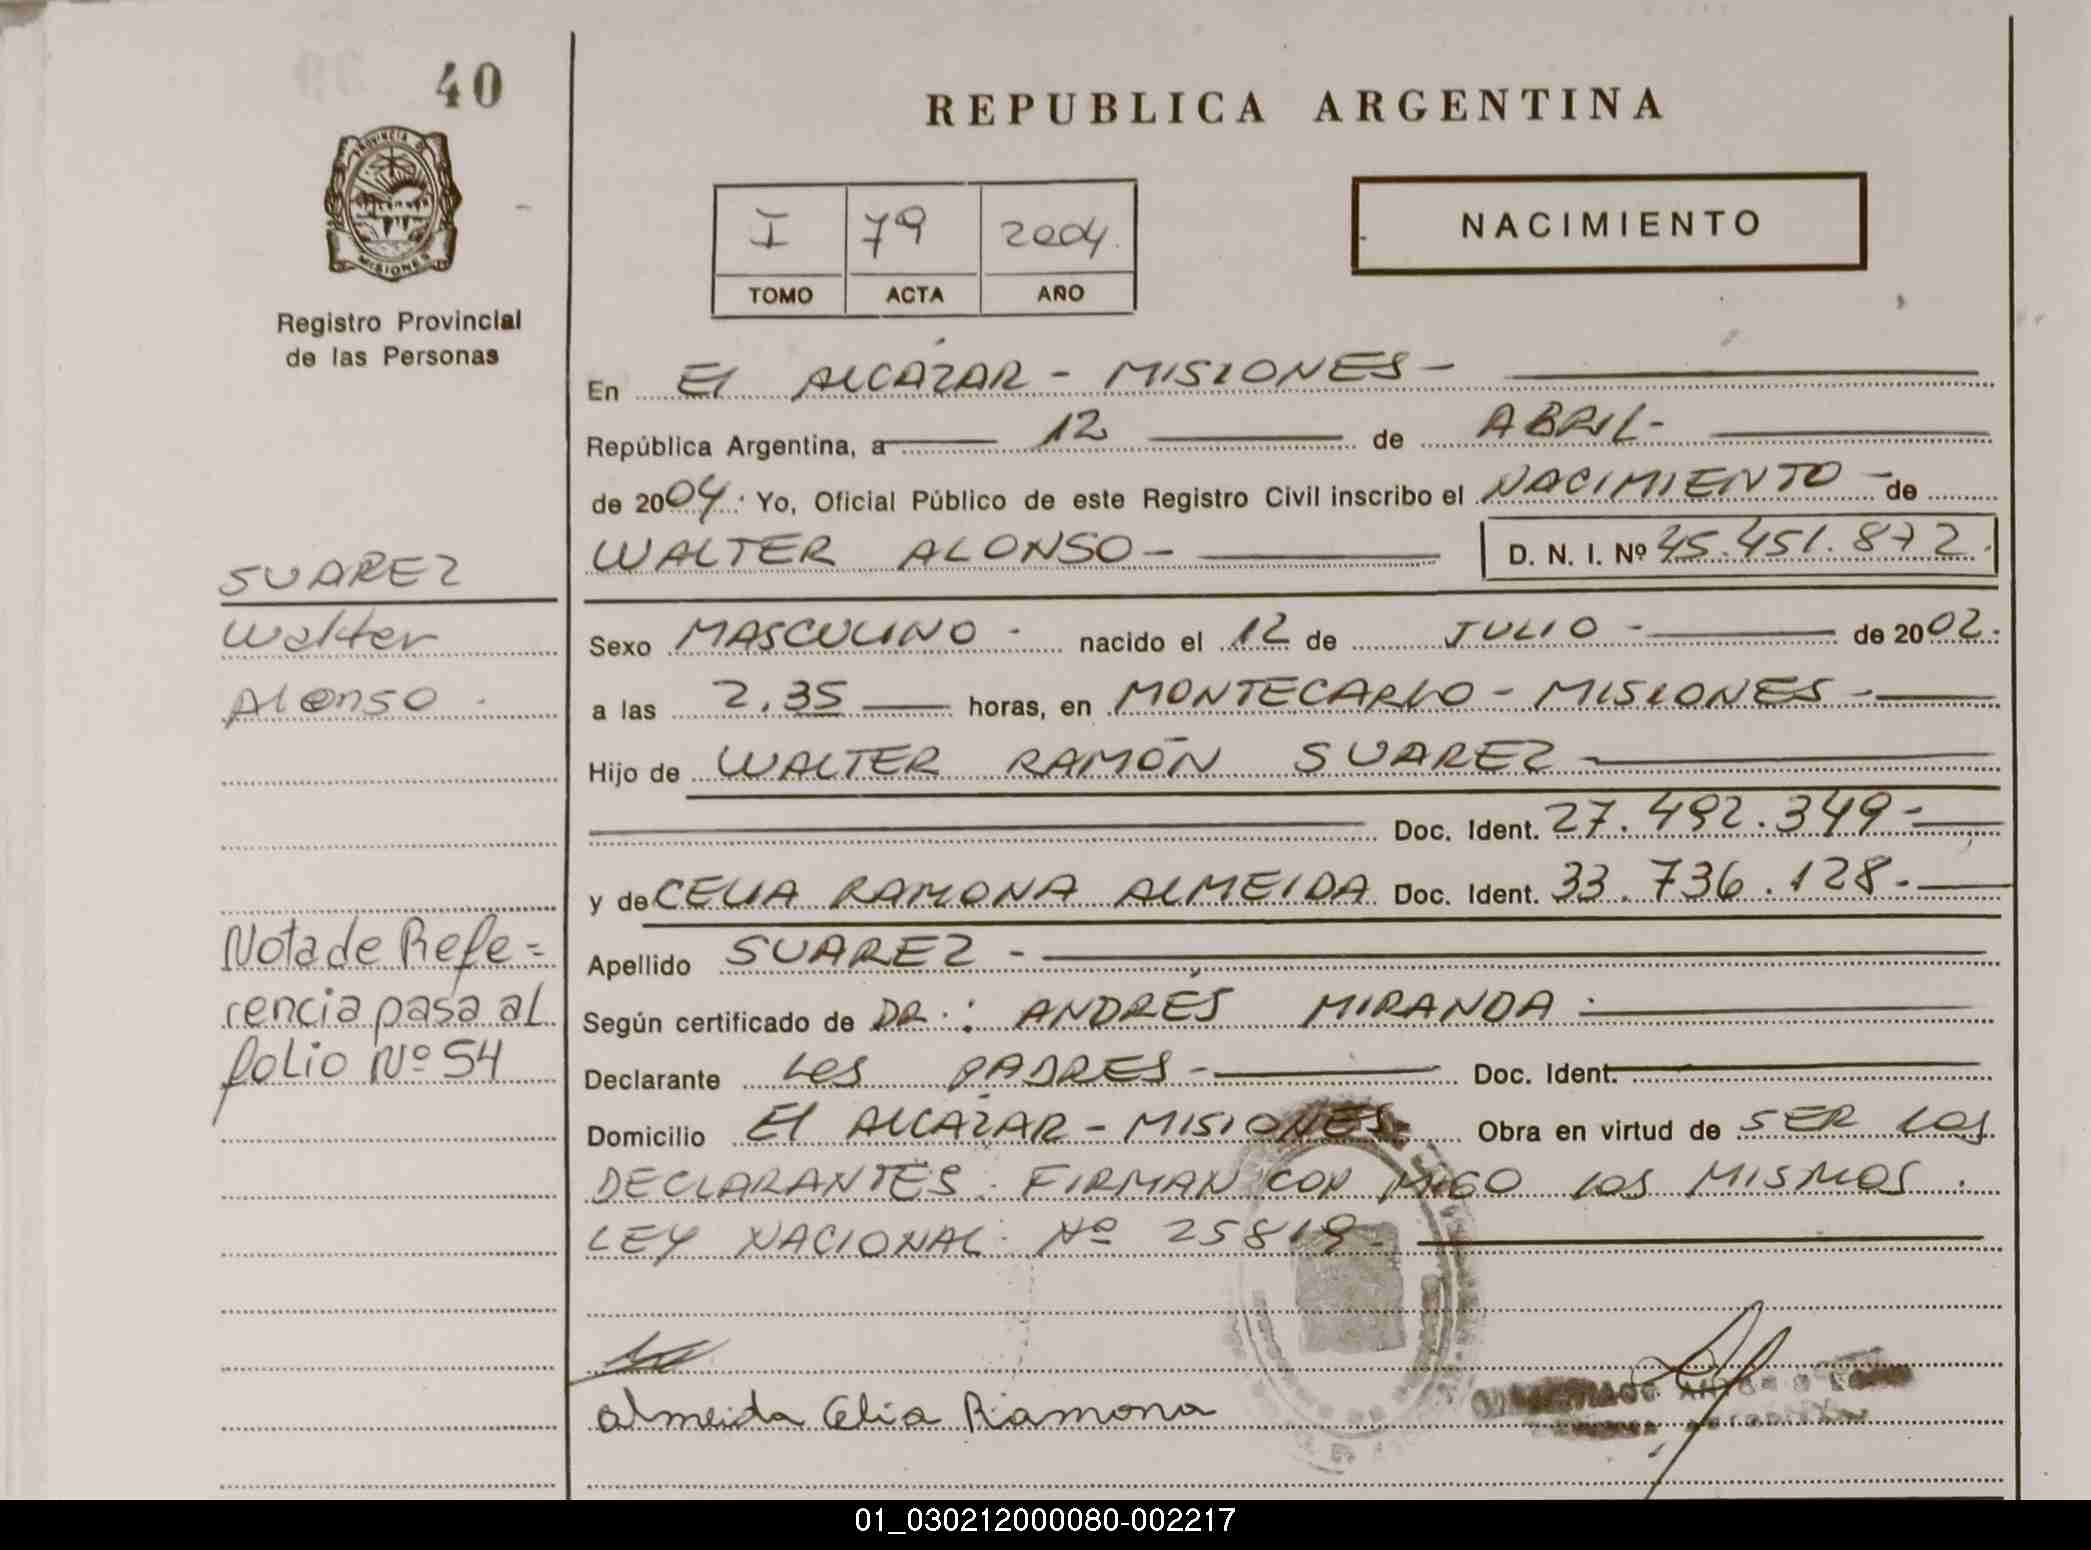 40
PROVINCIA DE
MISIONES
Registro Provincial
de las Personas
REPUBLICA ARGENTINA
I 79 2004.
TOMO ACTA AÑO
NACIMIENTO
En El ALCAZAR - MISIONES -
República Argentina, a 12 de ABRIL -
de 2004. Yo, Oficial Público de este Registro Civil inscribo el NACIMIENTO - de
WALTER ALONSO - D. N. I. Nº 45.451.872.
SUAREZ
Walter
Alonso.
Sexo MASCULINO - nacido el 12 de JULIO - de 2002.
a las 2.35 horas, en MONTECARLO - MISIONES -
Hijo de WALTER RAMÓN SUAREZ
Doc. Ident. 27.492.349 -
y de CELIA RAMONA ALMEIDA Doc. Ident. 33.736.128 -
Apellido SUAREZ -
Según certificado de DR.: ANDRÉS MIRANDA.
Declarante LOS PADRES - Doc. Ident.
Domicilio El ALCAZAR - MISIONES - Obra en virtud de SER LOS
DECLARANTES. FIRMAN CON MIGO LOS MISMOS.
LEY NACIONAL Nº 25819 -
Nota de Refe=
rencia pasa al
folio Nº 54
almeida Celia Ramona
01_030212000080-002217